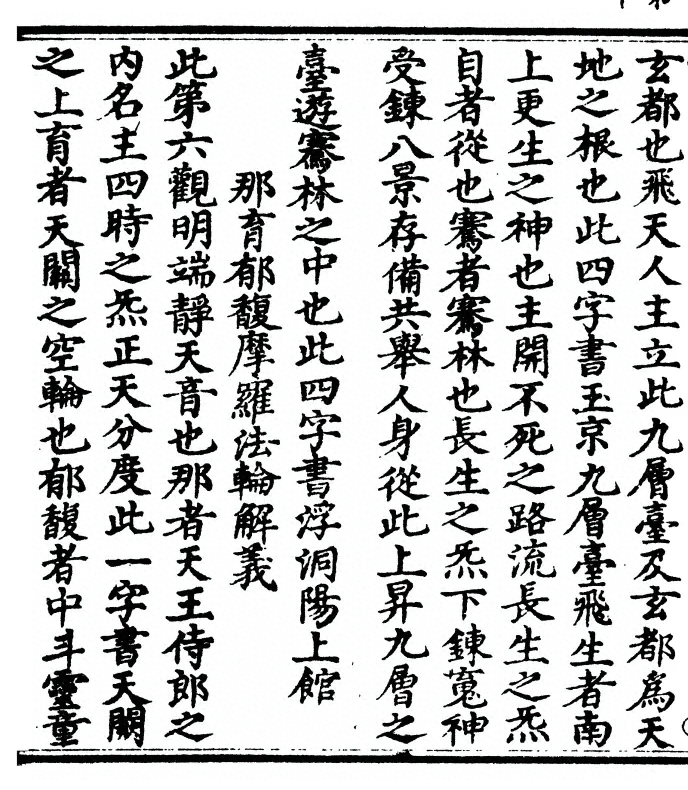 玄都也飛天人主立此九層臺及玄都爲天
地之根也此四字書玉京九層臺飛生者南
上更生之神也主開不死之路流長生之炁
自者從也騫者騫林也長生之炁下鍊䰟神
受鍊八景存備共舉人身從此上昇九層之
臺遊騫林之中也此四字書浮洞陽上館
那育郁馥摩羅法輪解義
此第六觀明端靜天音也那者天王侍郎之
内名主四時之炁正天分度此一字書天關
之上育者天關之空輪也郁馥者中斗靈童